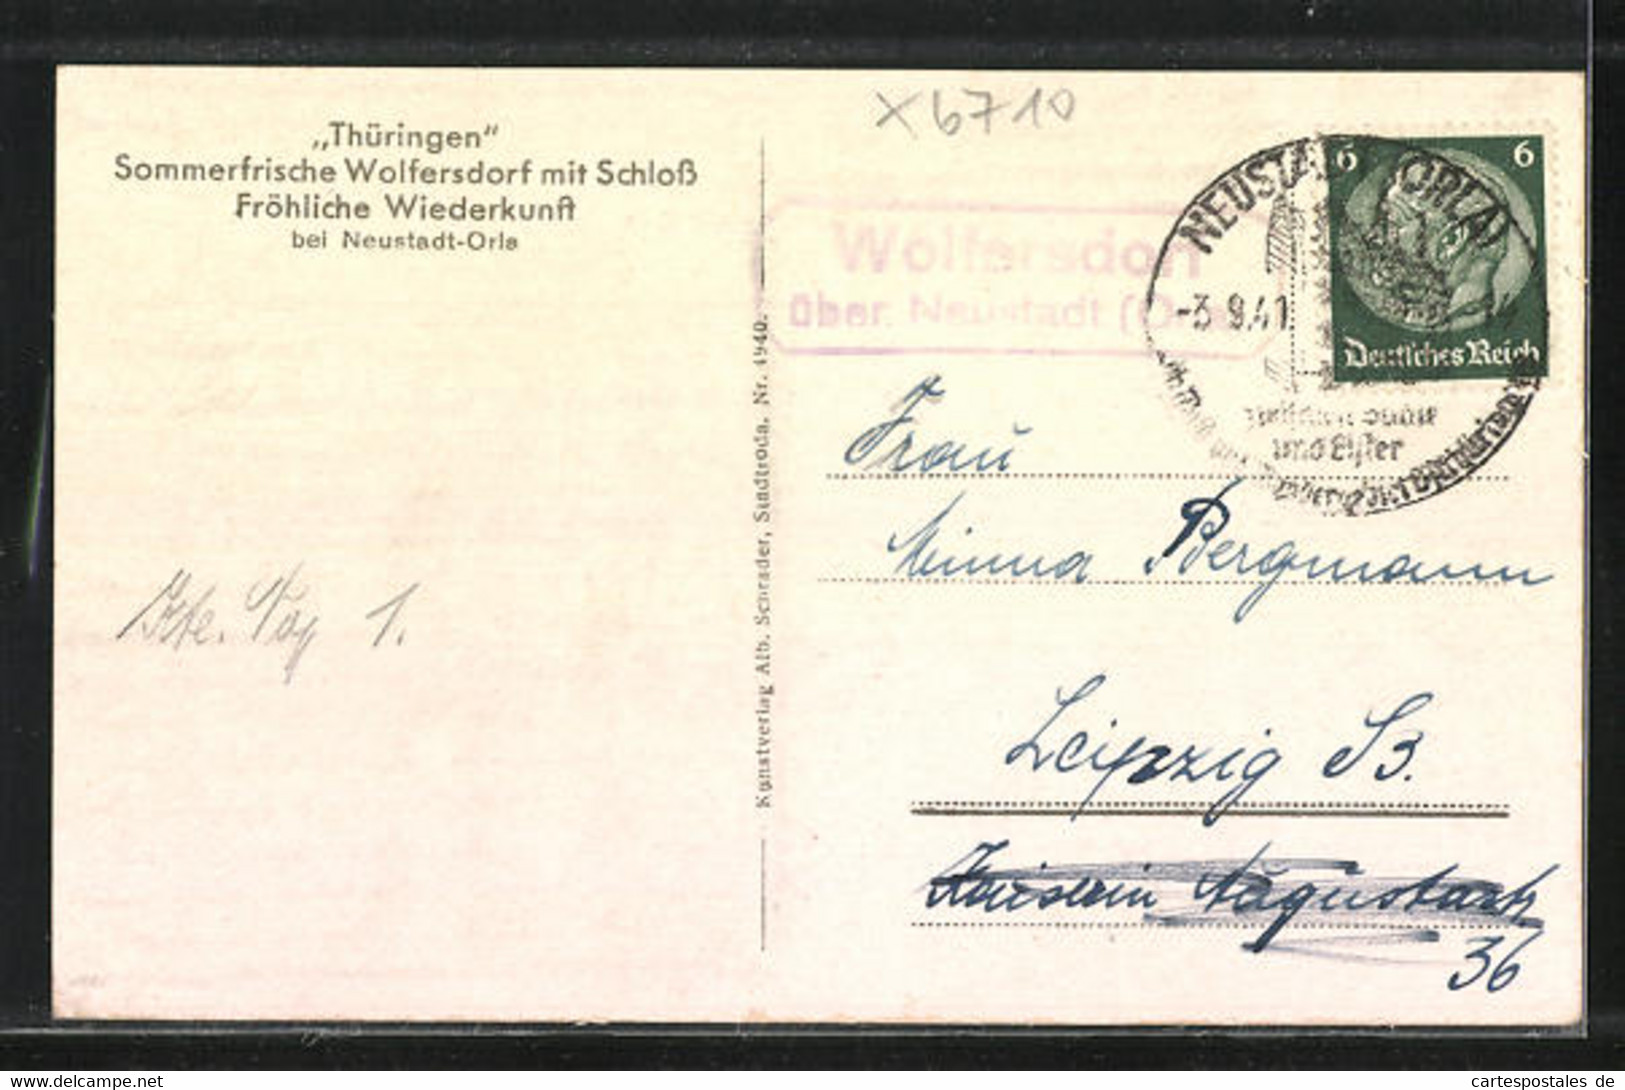 „Thüringen“
Sommerfrische Wolfersdorf mit Schloß
Fröhliche Wiederkunft
bei Neustadt-Orla
x6710
Wolfersdorf
über Neustadt (Orla)
NEUSTADT (ORLA)
-3.9.41
und Elster
6 6
Deutsches Reich
Kunstverlag Alb. Schrader, Stadtroda. Nr. 4940.
Frau
Minna Bergmann
Leipzig S3.
Kaiserin Augustastr
36
1.